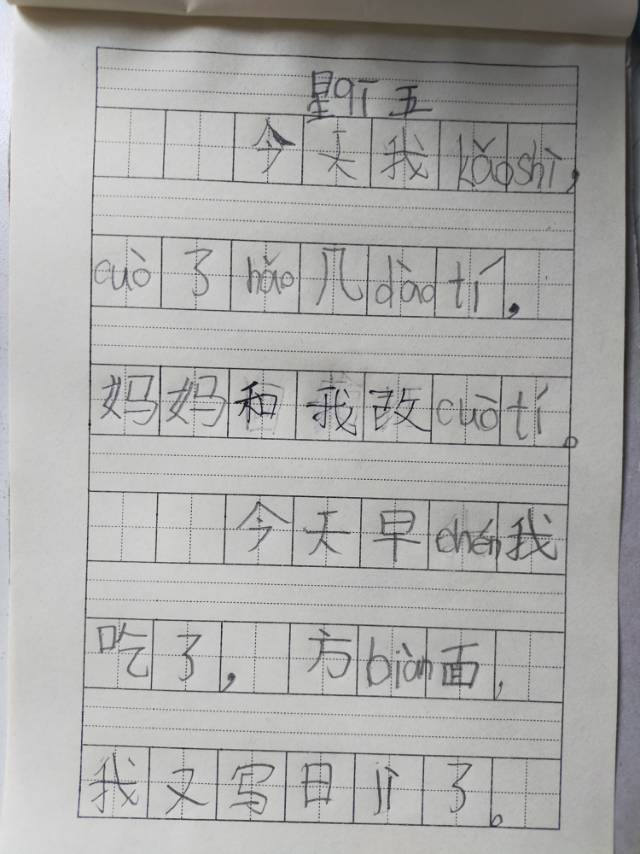 星qī 五
今天我kǎoshì，
cuò了hǎo几dàotí，
妈妈和我改cuòtí。
今天早chén我
吃了，方biàn面，
我又写日jì了。